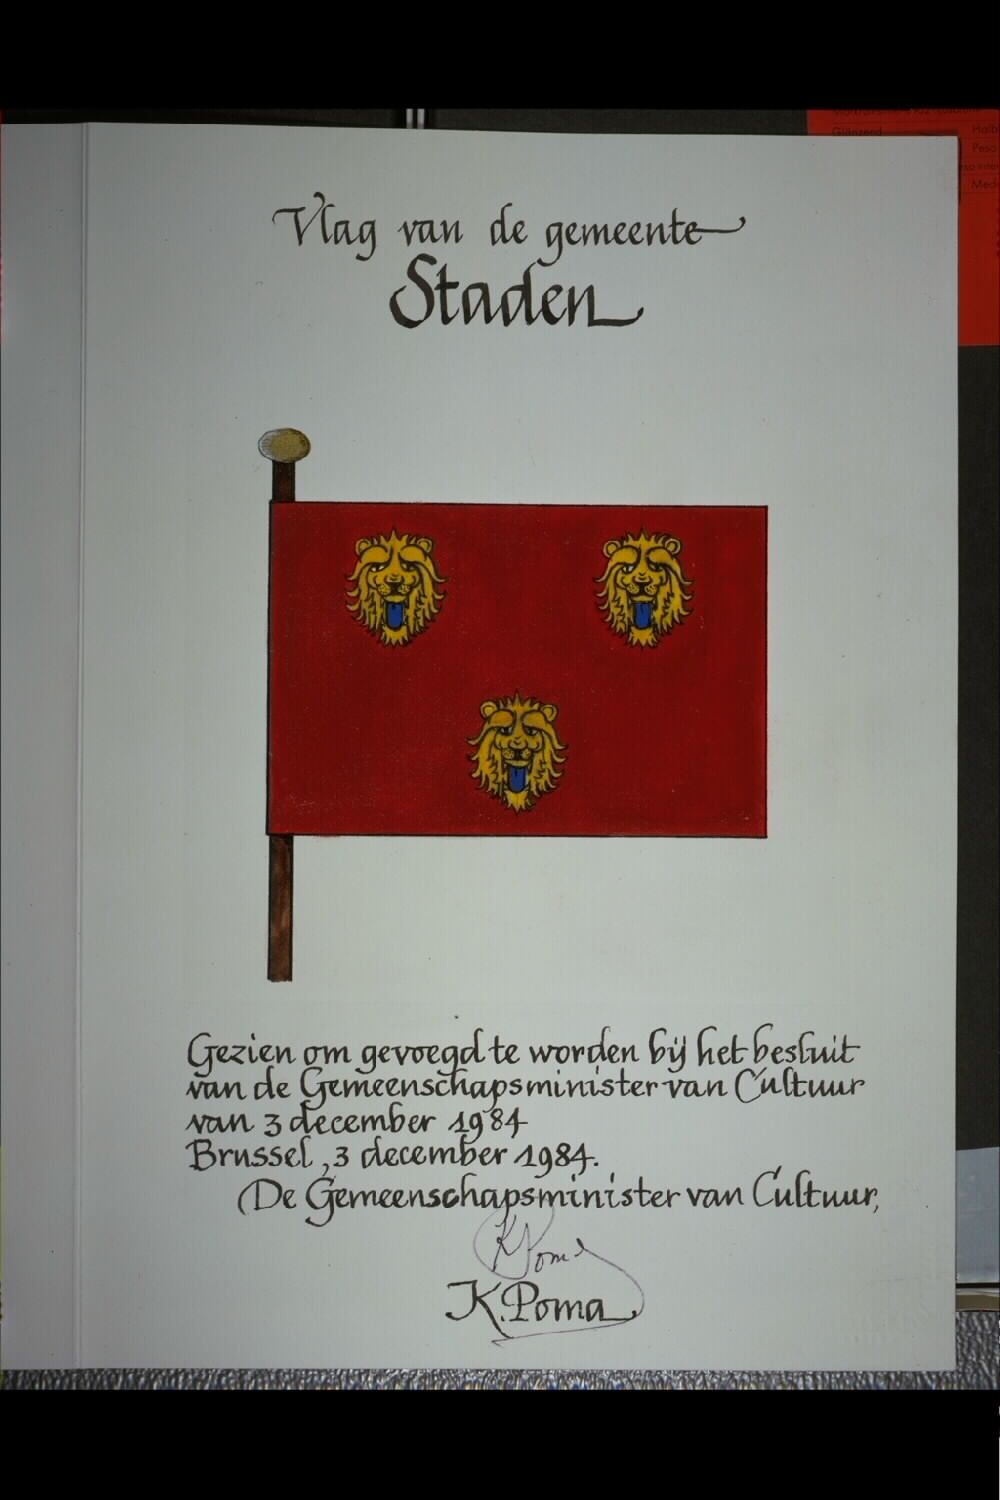 Vlag van de gemeente
Staden
Gezien om gevoegd te worden bij het besluit
van de Gemeenschapsminister van Cultuur
van 3 december 1984
Brussel, 3 december 1984.
De Gemeenschapsminister van Cultuur,
K Poma
K. Poma
Glänzend
Halb
Peso
Med